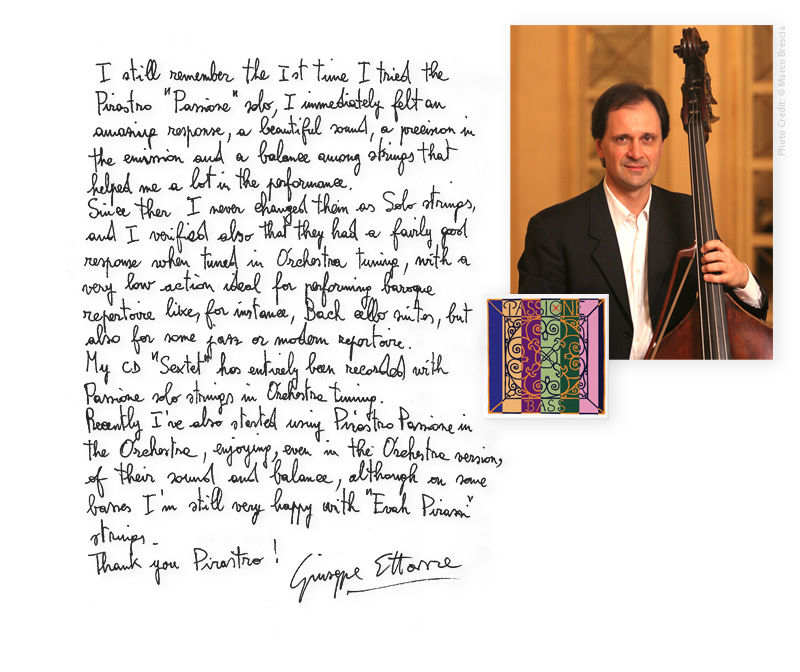 I still remember the Ist time I tried the
Pirastro "Passione" solo, I immediately felt an
amazing response, a beautiful sound, a precision in
the emission and a balance among strings that
helped me a lot in the performance.
Since then I never changed them as Solo strings,
and I verified also that they had a fairly good
response when tuned in Orchestra tuning, with a
very low action ideal for performing baroque
repertoire like, for instance, Bach cello suites, but
also for some jazz or modern repertoire.
My CD "Sextet" has entirely been recorded with
Passione solo strings in Orchestra tuning.
Recently I've also started using Pirastro Passione in
the Orchestra, enjoying, even in the Orchestra version,
of their sound and balance, although on some
basses I'm still very happy with "Evah Pirazzi"
strings.
Thank you Pirastro!
Giuseppe Ettorre
Photo Credit: © Marco Brescia
PASSIONE
BASS